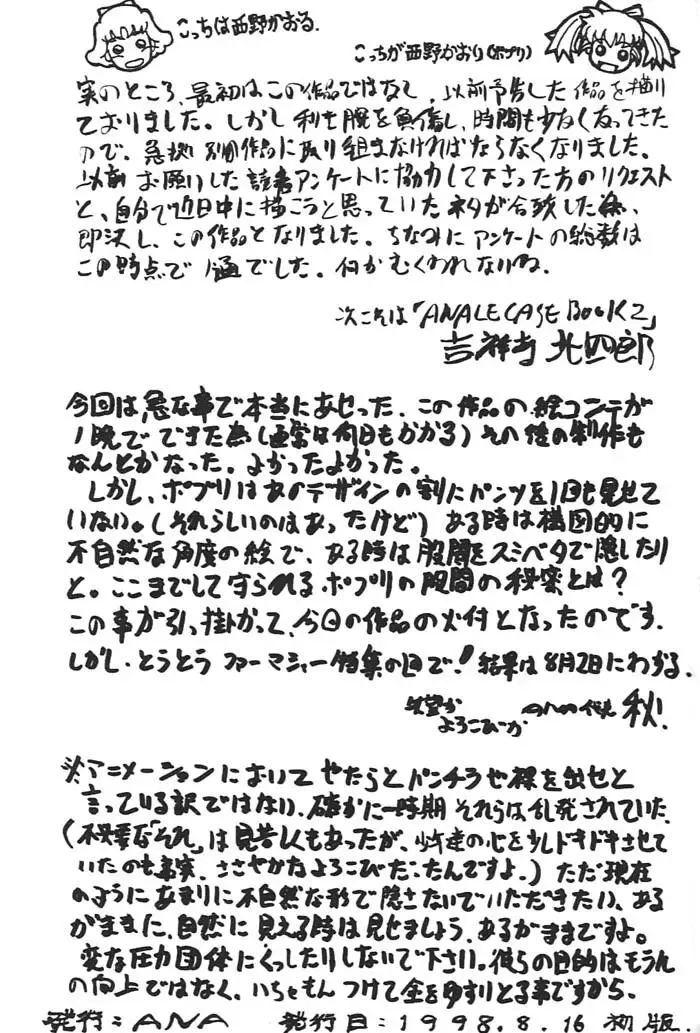 こっちは西野かおる.
こっちが西野かおり(ポプリ)
実のところ、最初はこの作品ではなく、以前予告した作品を描い
ておりました。しかし利き腕を負傷し、時間も少なくなってきた
ので、急拠 別の作品に取り組まなければならなくなりました。
以前お願いした読者アンケートに協力して下さった方のリクエスト
と、自分で近日中に描こうと思っていたネタが合致した為、
即決し、この作品となりました。ちなみにアンケートの総数は
この時点で1通でした。何かむくわれないね.
次こそは「ANALE CASE BOOK 2」
吉祥寺 北四郎
今回は急な事で本当にあせった. この作品の絵コンテが
1晩でできた為(通常は何日もかかる)その後の制作も
なんとかなった. よかったよかった。
しかし、ポプリはあのデザインの割にパンツを1回も見せて
いない。(それらしいのはあったけど)ある時は構図的に
不自然な角度の絵で、ある時は股間をスミベタで隠したり
と。ここまでして守られるポプリの股間の秘密とは?
この事が引っ掛かって、今回の作品の火付となったのです.
しかし、とうとうファーマシャー 特集の回で!結果は8月2日にわかる.
よろこびーか 秋!
※アニメーションにおいてやたらとパンチラや裸を出せと
言っている訳ではない. 確かに一時期それらは乱発されていた.
(不必要な"それ"は見苦しくもあったが、少年達の心を少しドキドキさせて
いたのも事実. ささやかなよろこびだったんですよ.)ただ現在
のようにあまりに不自然な形で隠さないでいただきたい、ある
がままに、自然に見える時は見せましょう. あるがままですよ。
変な圧力団体にくっしたりしないで下さい。彼らの目的はもうん
の向上ではなく、いちゃもんつけて金をゆすりとる事ですから.
発行:ANA 発行日:1998.8.16 初版